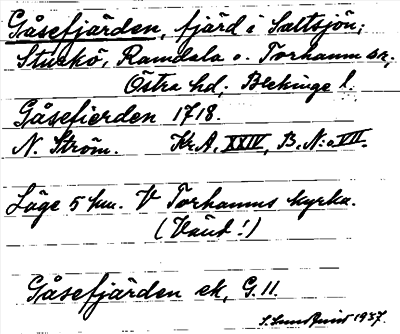 Gåsefjärden, fjärd i Saltsjön;
Sturkö, Ramdala o. Torhamn sn;
Östra hd; Blekinge l.
Gåsefierden 1718.
N. Ström. Kr.A, XXIV, B, N:o VII.
Läge 5 km. V Torhamns kyrka.
(Vänd!)
Gåsefjärden ek, G. 11.
1937.